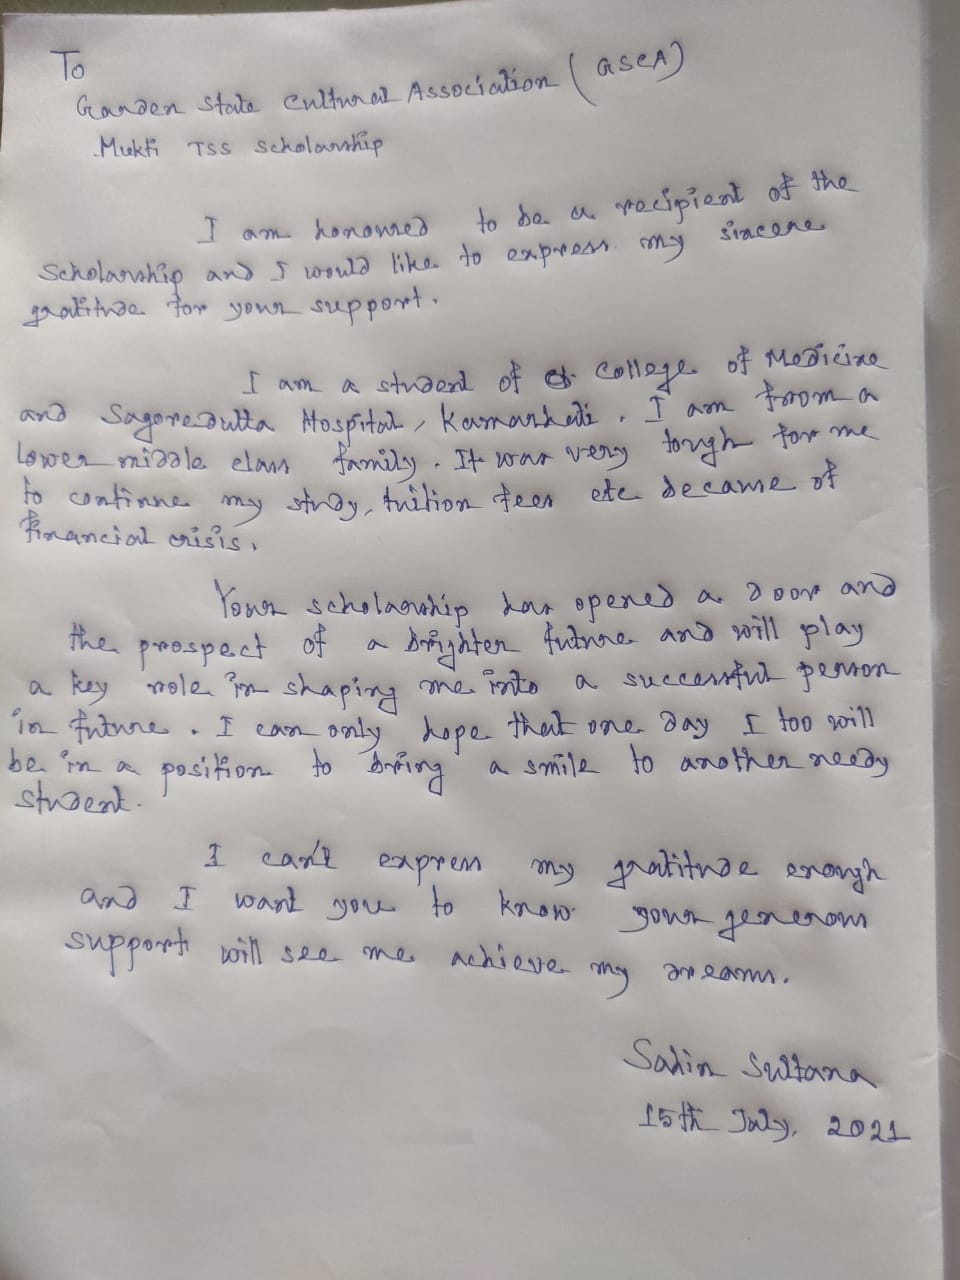 To
Garden State Cultural Association (GSCA)
Mukti TSS Scholarship
I am honoured to be a recipient of the
Scholarship and I would like to express my sincere
gratitude for your support.
I am a student of College of Medicine
and Sagoredutta Hospital, Kamarhati. I am from a
Lower middle class family. It was very tough for me
to continue my study, tuition fees etc became of
financial crisis.
Your scholarship has opened a door and
the prospect of a brighter future and will play
a key role in shaping me into a successful person
in future. I can only hope that one day I too will
be in a position to bring a smile to another needy
student.
I can't express my gratitude enough
and I want you to know your generous
support will see me achieve my dreams.
Sahin Sultana
15th July, 2021